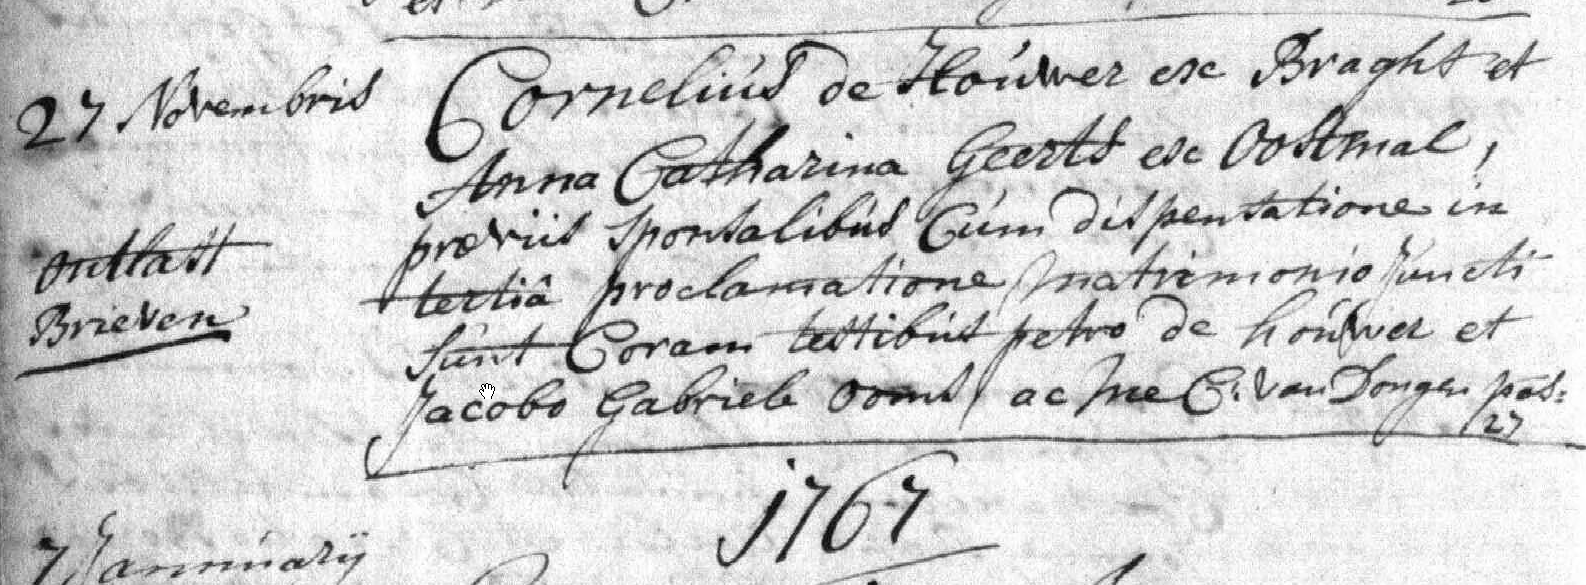 27 Novembris
Cornelius de Houwer exc Braght et
Anna Catharina Geerts exc Oostmal,
præviis sponsalibus Cum dispensatione in
tertiâ proclamatione matrimonio Juncti
sunt Coram testibus petro de houwer et
Jacobo Gabriele ooms, ac me C. van Dongen pas:
27
ontlast
Brieven
1767
7 Januuarij